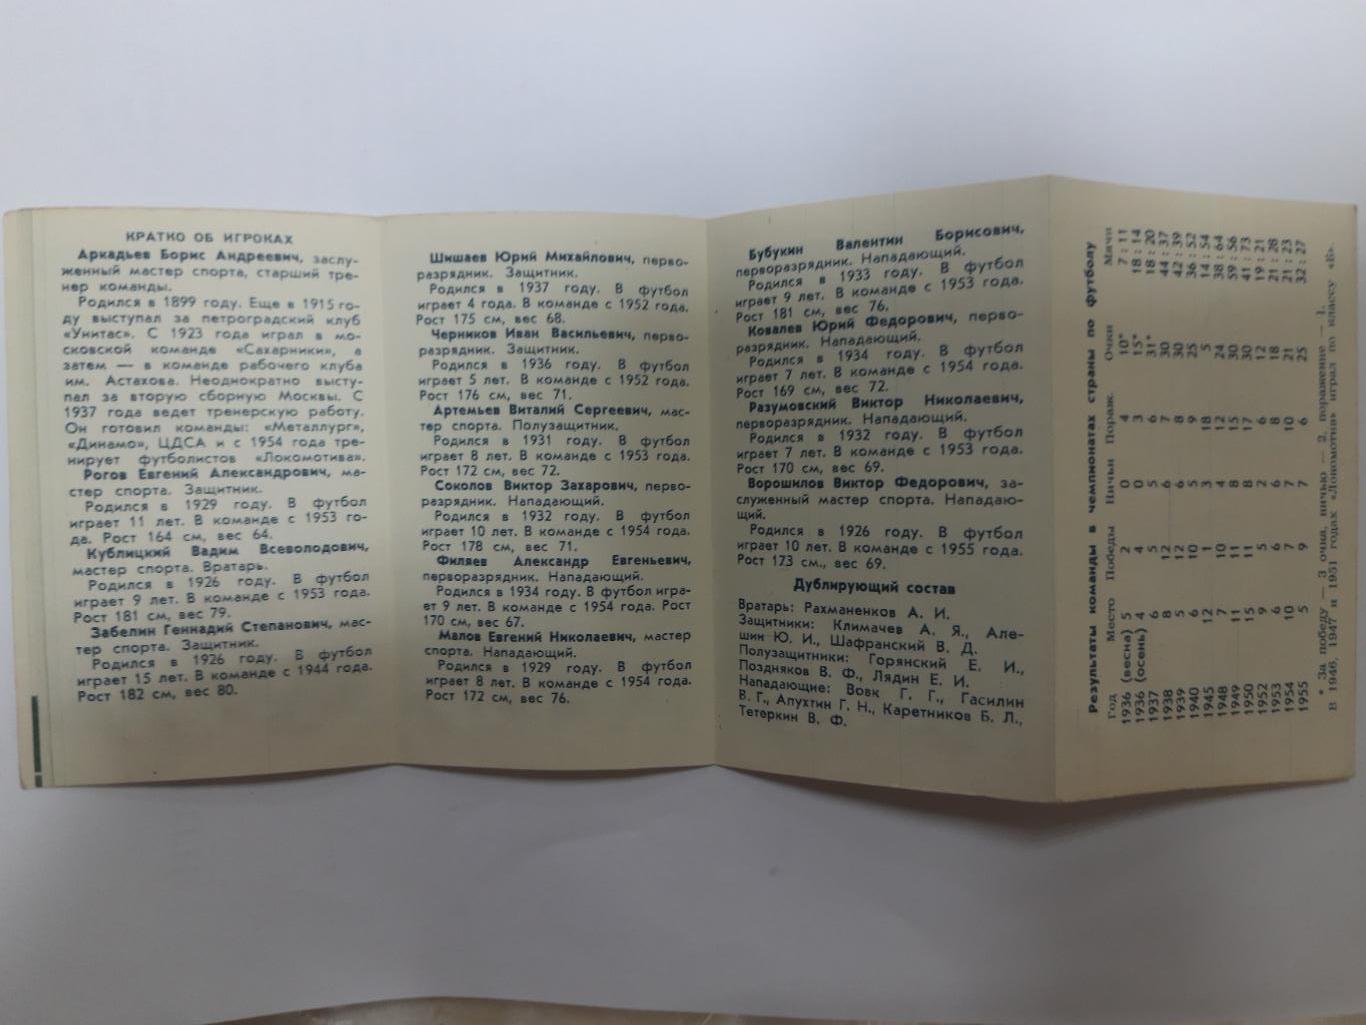 КРАТКО ОБ ИГРОКАХ
Аркадьев Борис Андреевич, заслу-
женный мастер спорта, старший тре-
нер команды.
Родился в 1899 году. Еще в 1915 го-
ду выступал за петроградский клуб
«Унитас». С 1923 года играл в мо-
сковской команде «Сахарники», а
затем — в команде рабочего клуба
им. Астахова. Неоднократно высту-
пал за вторую сборную Москвы. С
1937 года ведет тренерскую работу.
Он готовил команды: «Металлург»,
«Динамо», ЦДСА и с 1954 года тре-
нирует футболистов «Локомотива».
Рогов Евгений Александрович, ма-
стер спорта. Защитник.
Родился в 1929 году. В футбол
играет 11 лет. В команде с 1953 го-
да. Рост 164 см, вес 64.
Кублицкий Вадим Всеволодович,
мастер спорта. Вратарь.
Родился в 1926 году. В футбол
играет 9 лет. В команде с 1953 года.
Рост 181 см, вес 79.
Забелин Геннадий Степанович, мас-
тер спорта. Защитник.
Родился в 1926 году. В футбол
играет 15 лет. В команде с 1944 года.
Рост 182 см, вес 80.
Шишаев Юрий Михайлович, перво-
разрядник. Защитник.
Родился в 1937 году. В футбол
играет 4 года. В команде с 1952 года.
Рост 175 см, вес 68.
Черников Иван Васильевич, перво-
разрядник. Защитник.
Родился в 1936 году. В футбол
играет 5 лет. В команде с 1952 года.
Рост 176 см, вес 71.
Артемьев Виталий Сергеевич, мас-
тер спорта. Полузащитник.
Родился в 1931 году. В футбол
играет 8 лет. В команде с 1953 года.
Рост 172 см, вес 72.
Соколов Виктор Захарович, перво-
разрядник. Нападающий.
Родился в 1932 году. В футбол
играет 10 лет. В команде с 1954 года.
Рост 178 см, вес 71.
Филяев Александр Евгеньевич,
перворазрядник. Нападающий.
Родился в 1934 году. В футбол игра-
ет 9 лет. В команде с 1954 года. Рост
170 см, вес 67.
Малов Евгений Николаевич, мастер
спорта. Нападающий.
Родился в 1929 году. В футбол
играет 8 лет. В команде с 1954 года.
Рост 172 см, вес 76.
Бубукин Валентин Борисович,
перворазрядник. Нападающий.
Родился в 1933 году. В футбол
играет 9 лет. В команде с 1953 года.
Рост 181 см, вес 76.
Ковалев Юрий Федорович, перво-
разрядник. Нападающий.
Родился в 1934 году. В футбол
играет 7 лет. В команде с 1954 года.
Рост 169 см, вес 72.
Разумовский Виктор Николаевич,
перворазрядник. Нападающий.
Родился в 1932 году. В футбол
играет 7 лет. В команде с 1953 года.
Рост 170 см, вес 69.
Ворошилов Виктор Федорович, за-
служенный мастер спорта. Нападаю-
щий.
Родился в 1926 году. В футбол
играет 10 лет. В команде с 1955 года.
Рост 173 см., вес 69.
Дублирующий состав
Вратарь: Рахманенков А. И.
Защитники: Климачев А. Я., Але-
шин Ю. И., Шафранский В. Д.
Полузащитники: Горянский Е. И.,
Поздняков В. Ф., Лядин Е. И.
Нападающие: Вовк Г. Г., Гасилин
В. Г., Апухтин Г. Н., Каретников Б. Л.,
Тетеркин В. Ф.
Результаты команды в чемпионатах страны по футболу
Год Место Победы Ничьи Пораж. Очки Мячи
1936 (весна) 5 2 0 4 10* 7:11
1936 (осень) 4 4 0 3 15* 18:14
1937 6 5 5 6 31* 18:20
1938 8 12 6 7 30 44:37
1939 5 12 6 8 30 42:39
1940 6 10 5 9 25 36:52
1945 12 1 3 18 5 14:54
1948 7 10 4 12 24 38:64
1949 11 11 8 15 30 59:56
1950 15 11 8 17 30 41:73
1952 9 5 2 6 12 19:21
1953 6 6 6 8 18 21:28
1954 10 7 7 10 21 21:23
1955 5 9 7 6 25 32:27
* За победу — 3 очка, ничью — 2, поражение — 1.
В 1946, 1947 и 1951 годах «Локомотив» играл по классу «Б».